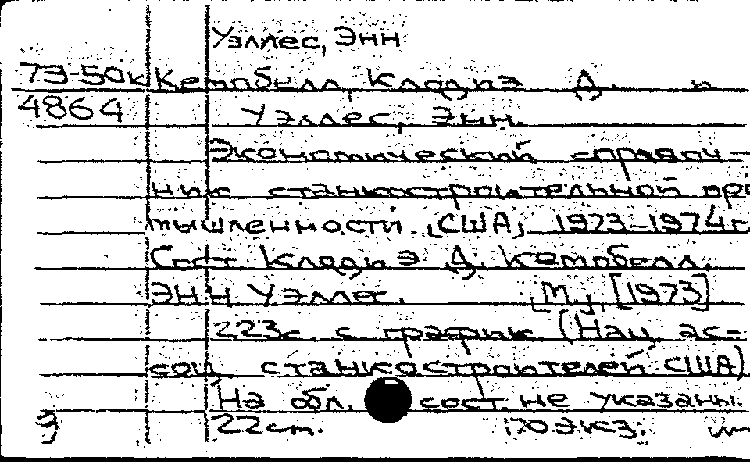 Уэллес, Энн
73-50к Кемпбелл, Клодиэ Д. и
4864 Уэллес, Энн.
Экономический справоч-
ник станкостроительной про
мышленности. [США], 1973-1974г
Сост. Клодиэ Д. Кемпбелл,
Энн Уэллес. [М.], [1973]
223с. с график. (Нац. ас-
соц. станкостроителей США)
На обл. сост. не указаны.
22 см. 70 экз.